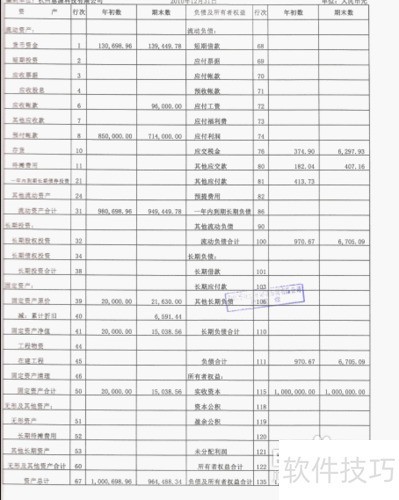 2010年12月31日 单位：人民币元
资 产 行次 年初数 期末数 负债及所有者权益 行次 年初数 期末数
流动资产： 流动负债：
货币资金 1 130,698.96 139,449.78 短期借款 68
短期投资 2 应付票据 69
应收票据 3 应付帐款 70
应收股息 4 预收帐款 71
应收帐款 6 96,000.00 应付工资 72
其他应收款 7 应付福利费 73
预付帐款 8 850,000.00 714,000.00 应付利润 74
存货 10 应交税金 76 374.90 6,297.93
待摊费用 11 其他应交款 80 182.04 407.16
一年内到期长期债券投资 21 其他应付款 81 413.73
其他流动资产 24 预提费用 82
流动资产合计 31 980,698.96 949,449.78 一年内到期长期负债 86
长期投资： 其他流动负债 90
长期股权投资 32 流动负债合计 100 970.67 6,705.09
长期债权投资 34 长期负债：
长期投资合计 38 长期借款 101
固定资产： 长期应付款 103
固定资产原价 39 20,000.00 21,630.00 其他长期负债 106
减：累计折旧 40 6,591.44
固定资产净值 41 20,000.00 15,038.56 长期负债合计 110
工程物资 44
在建工程 45 负债合计 111 970.67 6,705.09
固定资产清理 46 所有者权益：
固定资产合计 50 20,000.00 15,038.56 实收资本 115 1,000,000.00 1,000,000.00
无形及其他资产： 资本公积 118
无形资产 51 盈余公积 119
长期待摊费用 52 120
其他长期资产 53 未分配利润 121
无形及其他资产合计 60 所有者权益合计 122
资产总计 67 1,000,698.96 964,488.34 负债及所有者权益合计 135
软件技巧